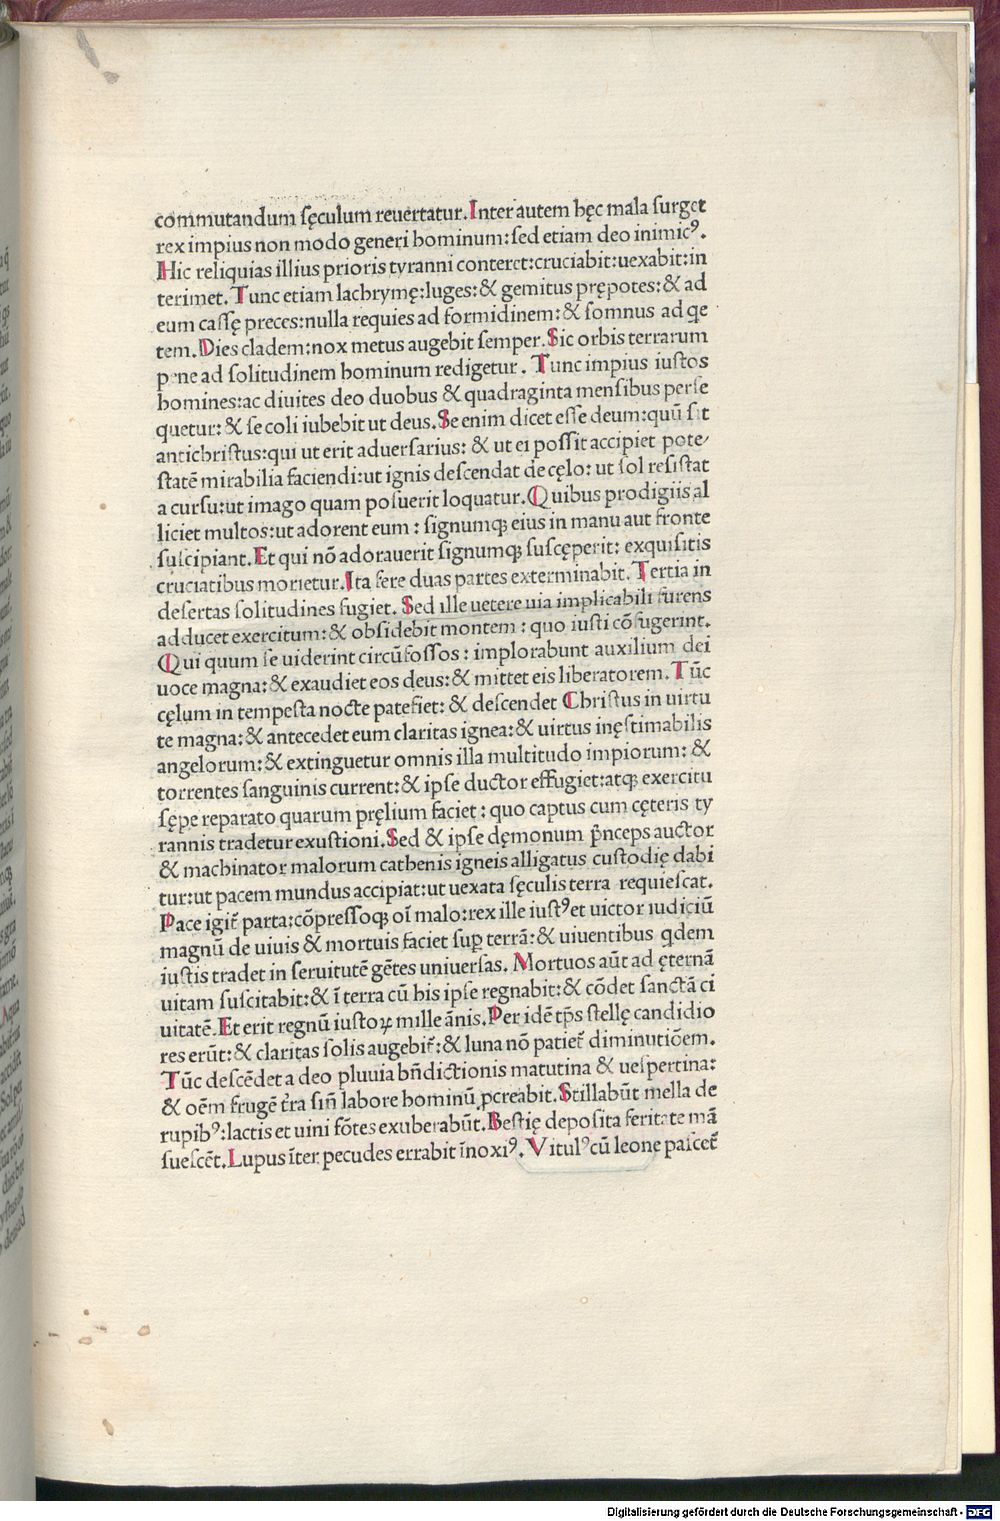 commutandum sęculum reuertatur. Inter autem hęc mala surget
rex impius non modo generi hominum: sed etiam deo inimicꝰ.
Hic reliquias illius prioris tyranni conteret: cruciabit: uexabit: in
terimet. Tunc etiam lachrymę: luges: & gemitus prępotes: & ad
eum cassę preces: nulla requies ad formidinem: & somnus ad qe
tem. Dies cladem: nox metus augebit semper. Sic orbis terrarum
pene ad solitudinem hominum redigetur. Tunc impius iustos
homines: ac diuites deo duobus & quadraginta mensibus perse
quetur: & se coli iubebit ut deus. Se enim dicet esse deum: quū sit
antichristus: qui ut erit aduersarius: & ut ei possit accipiet pote-
statē mirabilia faciendi: ut ignis descendat de cęlo: ut sol resistat
a cursu: ut imago quam posuerit loquatur. Quibus prodigiis al
liciet multos: ut adorent eum: signumqꝫ eius in manu aut fronte
suscipiant. Et qui nō adorauerit signumqꝫ suscęperit: exquisitis
cruciatibus morietur. Ita fere duas partes exterminabit. Tertia in
desertas solitudines fugiet. Sed ille uetere uia implicabili furens
adducet exercitum: & obsidebit montem: quo iusti cōfugerint.
Qui quum se uiderint circūfossos: implorabunt auxilium dei
uoce magna: & exaudiet eos deus: & mittet eis liberatorem. Tūc
cęlum in tempesta nocte patefiet: & descendet Christus in uirtu
te magna: & antecedet eum claritas ignea: & uirtus inęstimabilis
angelorum: & extinguetur omnis illa multitudo impiorum: &
torrentes sanguinis current: & ipse ductor effugiet: atqꝫ exercitu
sępe reparato quarum pręlium faciet: quo captus cum cęteris ty
rannis tradetur exustioni. Sed & ipse dęmonum p̄nceps auctor
& machinator malorum cathenis igneis alligatus custodię dabi
tur: ut pacem mundus accipiat: ut uexata sęculis terra requiescat.
Pace igit̄ parta: cōpressoqꝫ oī malo: rex ille iustꝰ et uictor iudiciū
magnū de uiuis & mortuis faciet suꝑ terrā: & uiuentibus qdem
iustis tradet in seruitutē gētes uniuersas. Mortuos aūt ad ęternā
uitam suscitabit: & ī terra cū his ipse regnabit: & cōdet sanctā ci
uitatē. Et erit regnū iustoꝝ mille ānis. Per idē tp̄s stellę candidio
res erūt: & claritas solis augebit̄: & luna nō patiet̄ diminutiōem.
Tūc descēdet a deo pluuia bn̄dictionis matutina & uespertina:
& oēm frugē t̄ra sin̄ labore hominū ꝓcreabit. Stillabūt mella de
rupibꝰ: lactis et uini fōtes exuberabūt. Bestię deposita feritate mā
suescēt. Lupus īter pecudes errabit īnoxiꝰ. Vitulꝰ cū leone pascet̄
Digitalisierung gefördert durch die Deutsche Forschungsgemeinschaft - DFG